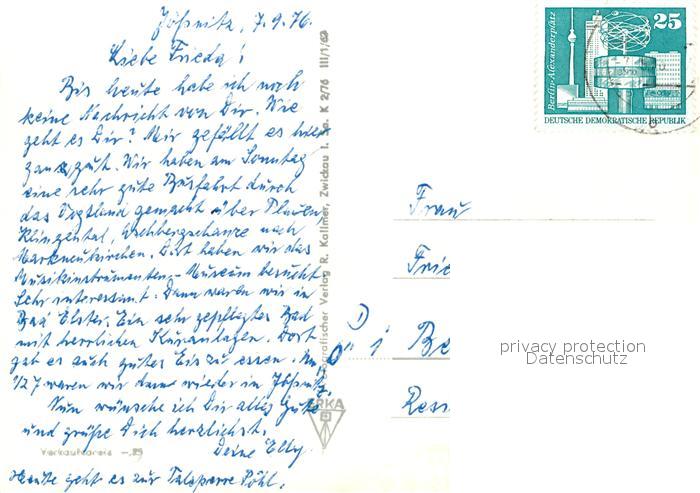 Jößnitz, 7.9.76.
Liebe Frieda!
Bis heute habe ich noch
keine Nachricht von Dir. Wie
geht es Dir? Mir gefällt es hier
ganz gut. Wir haben am Sonntag
eine sehr gute Busfahrt durch
das Vogtland gemacht über Plauen,
Klingental, Aschbergschanze nach
Markneukirchen. Dort haben wir das
Musikinstrumenten-Museum besucht
Sehr interessant. Dann waren wir in
Bad Elster. Ein sehr gepflegtes Bad
mit herrlichen Kuranlagen. Dort
gab es auch gutes Eis zu essen. Um
1/2 7 waren wir dann wieder in Jößnitz.
Nun wünsche ich Dir alles Gute
und grüße Dich herzlichst.
Deine Elly.
Heute geht es zur Talsperre Pöhl.
Verkaufspreis
Verlag R. Kallmer, Zwickau K 2/76 III/1/69
25
Berlin-Alexanderplatz
DEUTSCHE DEMOKRATISCHE REPUBLIK
Frau
Frie
Be
privacy protection
Datenschutz